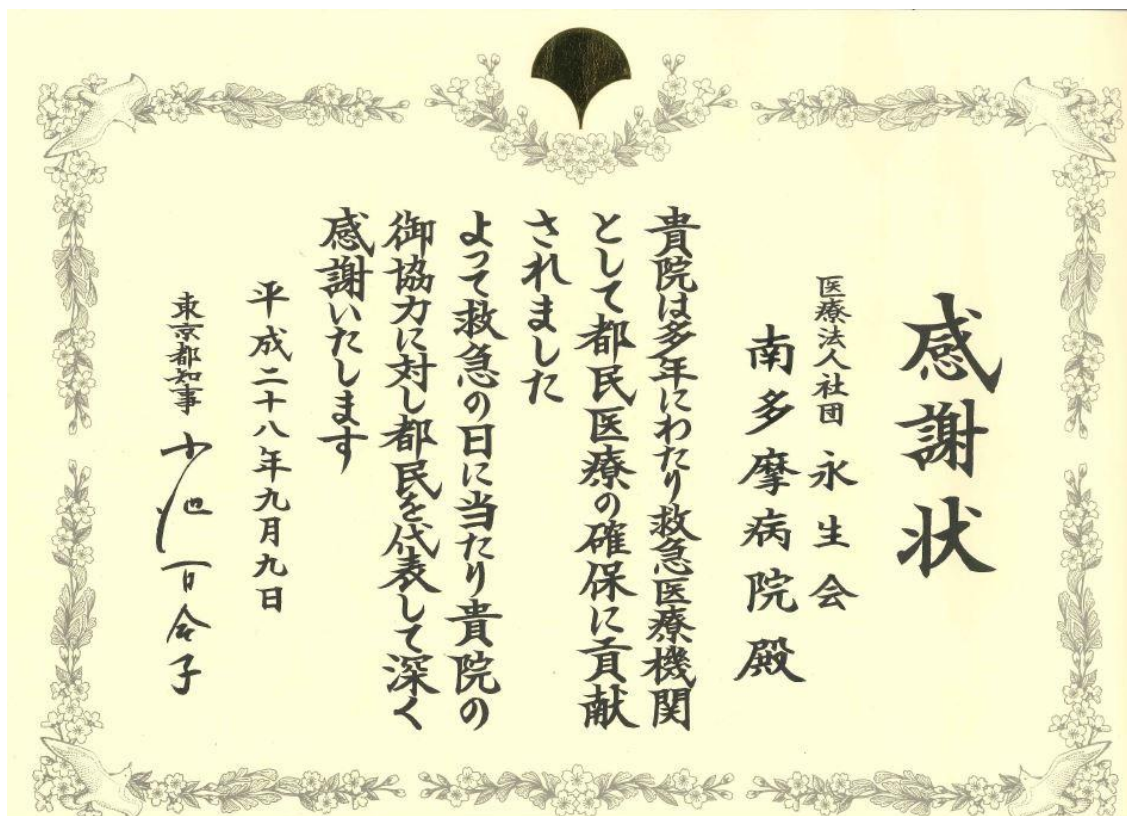 感謝状
医療法人社団 永生会
南多摩病院殿
貴院は多年にわたり救急医療機関
として都民医療の確保に貢献
されました
よって救急の日に当たり貴院の
御協力に対し都民を代表して深く
感謝いたします
平成二十八年九月九日
東京都知事 小池百合子